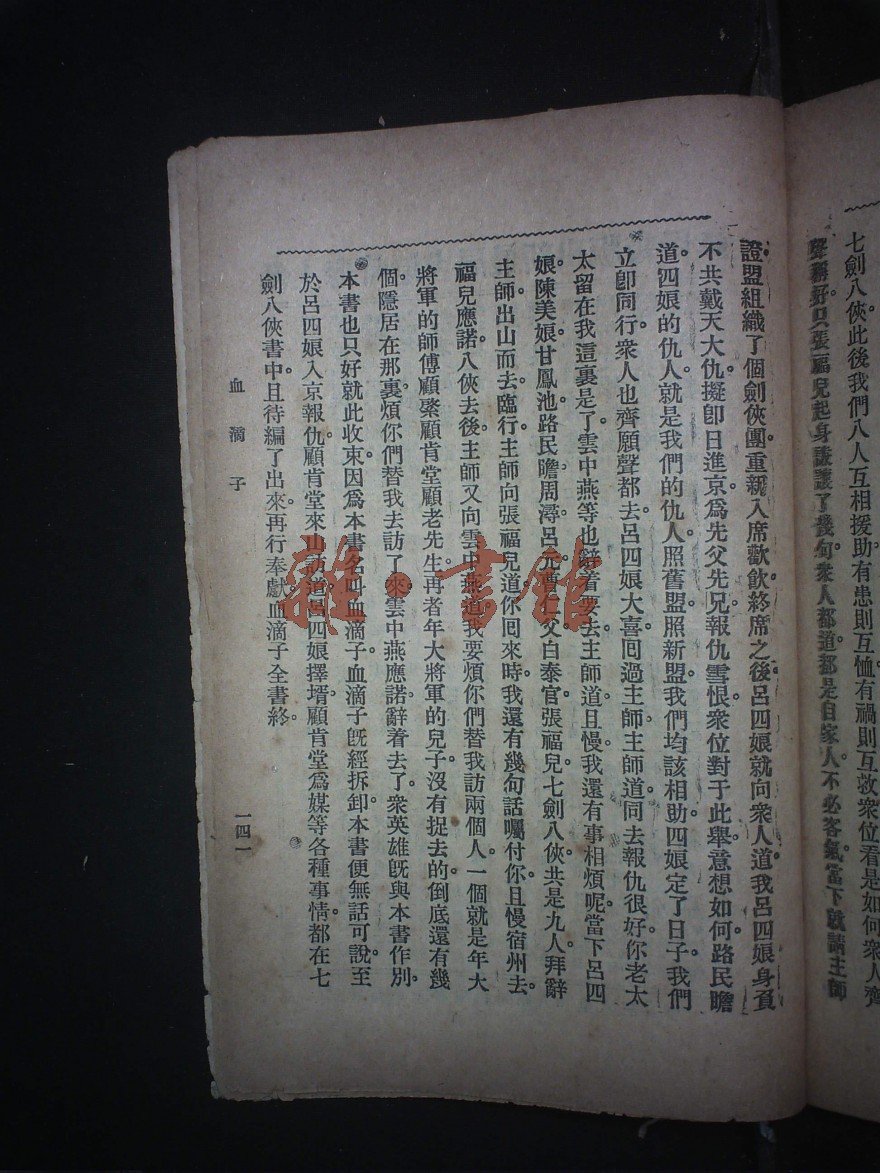 七劍八俠此後我們八人互相援助有患則互恤有禍則互救衆位看是如何衆人齊
聲稱好。只張福兒起身謙讓了幾句。衆人都道都是自家人。不必客氣。當下就請主師
證盟組織了個劍俠團。重新入席歡飲。終席之後。呂四娘就向衆人道。我呂四娘身負
不共戴天大仇。擬卽日進京。爲先父先兄報仇雪恨。衆位對于此舉。意想如何。路民瞻
道。四娘的仇人。就是我們的仇人。照舊盟照新盟。我們均該相助。四娘定了日子。我們
立卽同行。衆人也齊願聲都去。呂四娘大喜。回過主師。主師道。同去報仇很好。你老太
太留在我這裏是了。雲中燕等也辭着要去。主師道。且慢。我還有事相煩呢。當下呂四
娘。陳美娘。甘鳳池。路民瞻。周潯。呂元。曹仁父。白泰官。張福兒。七劍八俠。共是九人。拜辭
主師。出山而去。臨行。主師向張福兒道。你囘來時。我還有幾句話囑付你。且慢宿州去。
福兒應諾。八俠去後。主師又向雲中燕道。我要煩你們替我訪兩個人。一個就是年大
將軍的師傅顧肯堂顧老先生。再者年大將軍的兒子。沒有捉去的。倒底還有幾
個。隱居在那裏。煩你們替我去訪了來。雲中燕應諾。辭着去了。衆英雄旣與本書作別。
本書也只好就此收束。因爲本書名叫血滴子。血滴子旣經拆卸。本書便無話可說。至
於呂四娘入京報仇。顧肯堂來山訪道。呂四娘擇壻。顧肯堂爲媒等各種事情。都在七
劍八俠書中。且待編了出來。再行奉獻。血滴子全書終。
血滴子
一四一
雜·書館